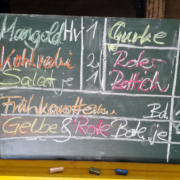 Mangold Hv 1
Kohlrabi 2
Salat je 1
Gurke
Roter
Rettich
Frühkarotten Bd. 1
Gelbe & Rote Bete je 1